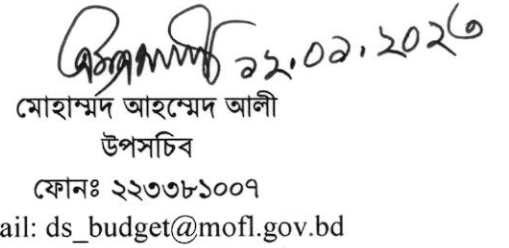 ১২.০১.২০২৩
মোহাম্মদ আহম্মেদ আলী
উপসচিব
ফোনঃ ২২৩৩৮১০০৭
ail: ds_budget@mofl.gov.bd